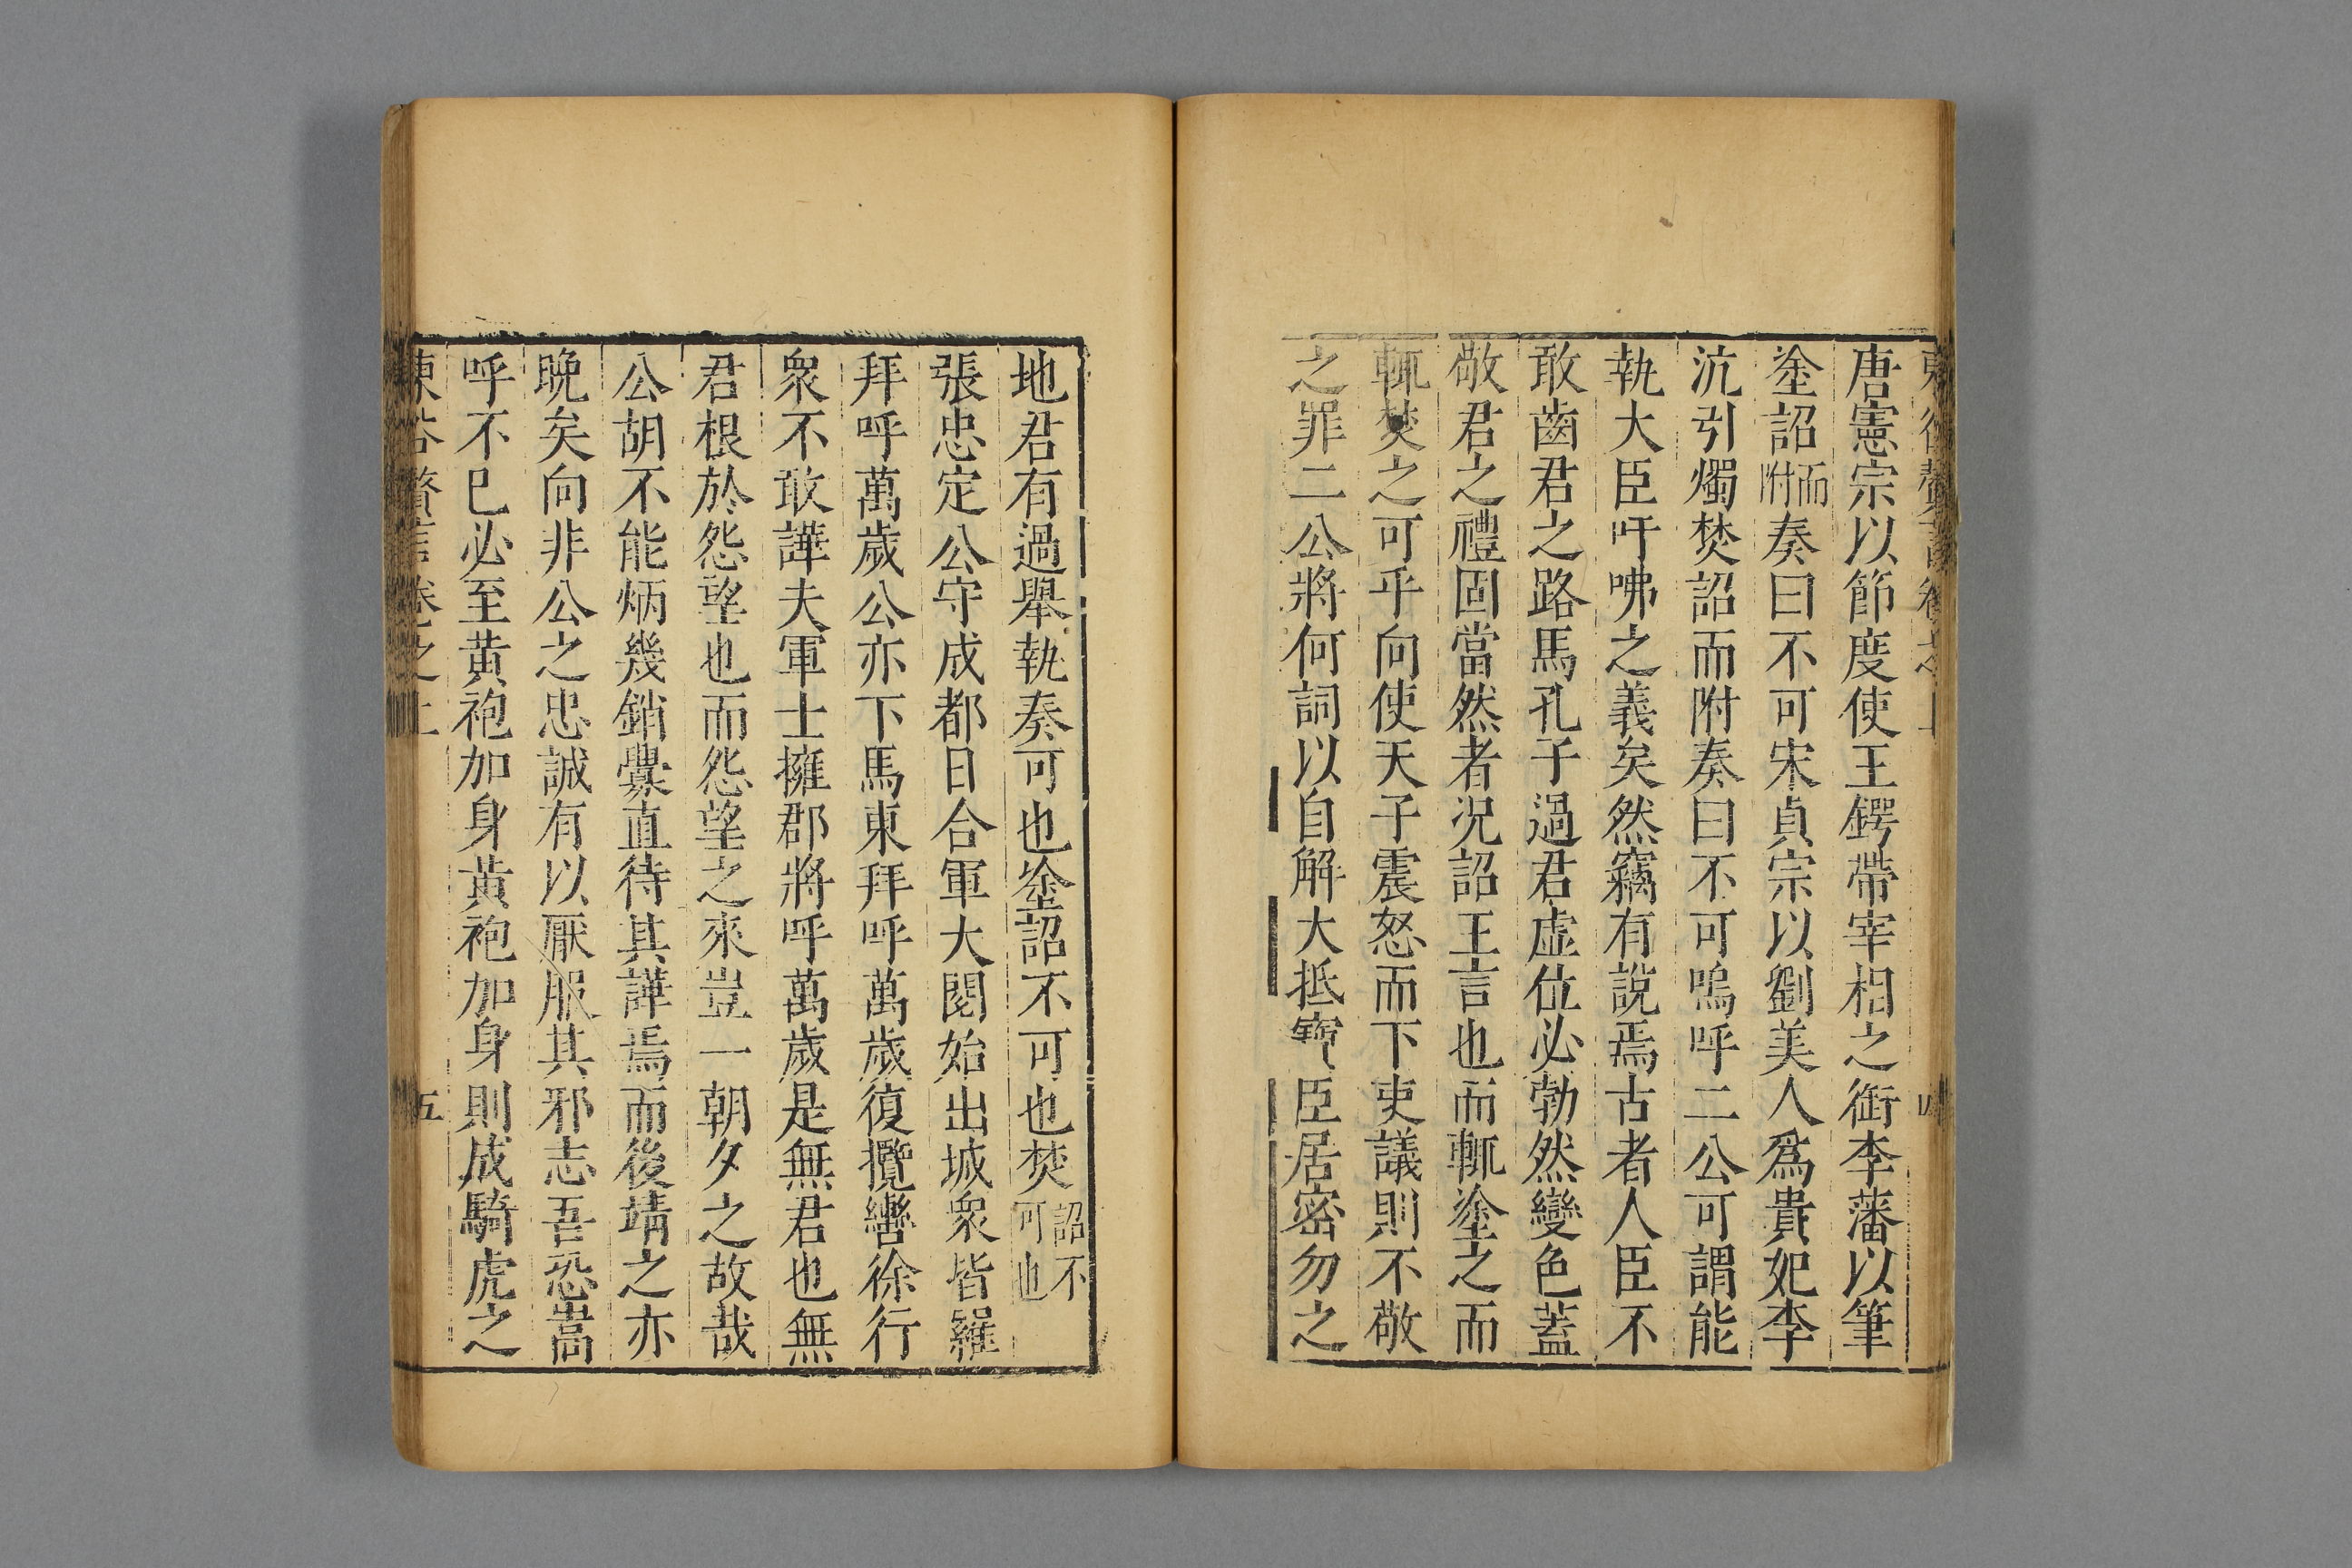 唐憲宗以節度使王鍔帶宰相之銜李藩以筆
塗詔而附奏曰不可宋真宗以劉美人爲貴妃李
沆引燭焚詔而附奏曰不可嗚呼二公可謂能
執大臣吁咈之義矣然竊有說焉古者人臣不
敢齒君之路馬孔子過君虛位必勃然變色蓋
敬君之禮固當然者況詔王言也而輒塗之而
輒焚之可乎向使天子震怒而下吏議則不敬
之罪二公將何詞以自解大抵 臣居密勿之
地君有過舉執奏可也塗詔不可也焚詔不可也
張忠定公守成都日合軍大閱始出城衆皆羅
拜呼萬歲公亦下馬東拜呼萬歲復攬轡徐行
衆不敢譁夫軍士擁郡將呼萬歲是無君也無
君根於怨望也而怨望之來豈一朝夕之故哉
公胡不能炳幾銷釁直待其譁焉而後靖之亦
晩矣向非公之忠誠有以厭服其邪志吾恐嵩
呼不已必至黃袍加身黃袍加身則成騎虎之
東谷贅言卷之上 五